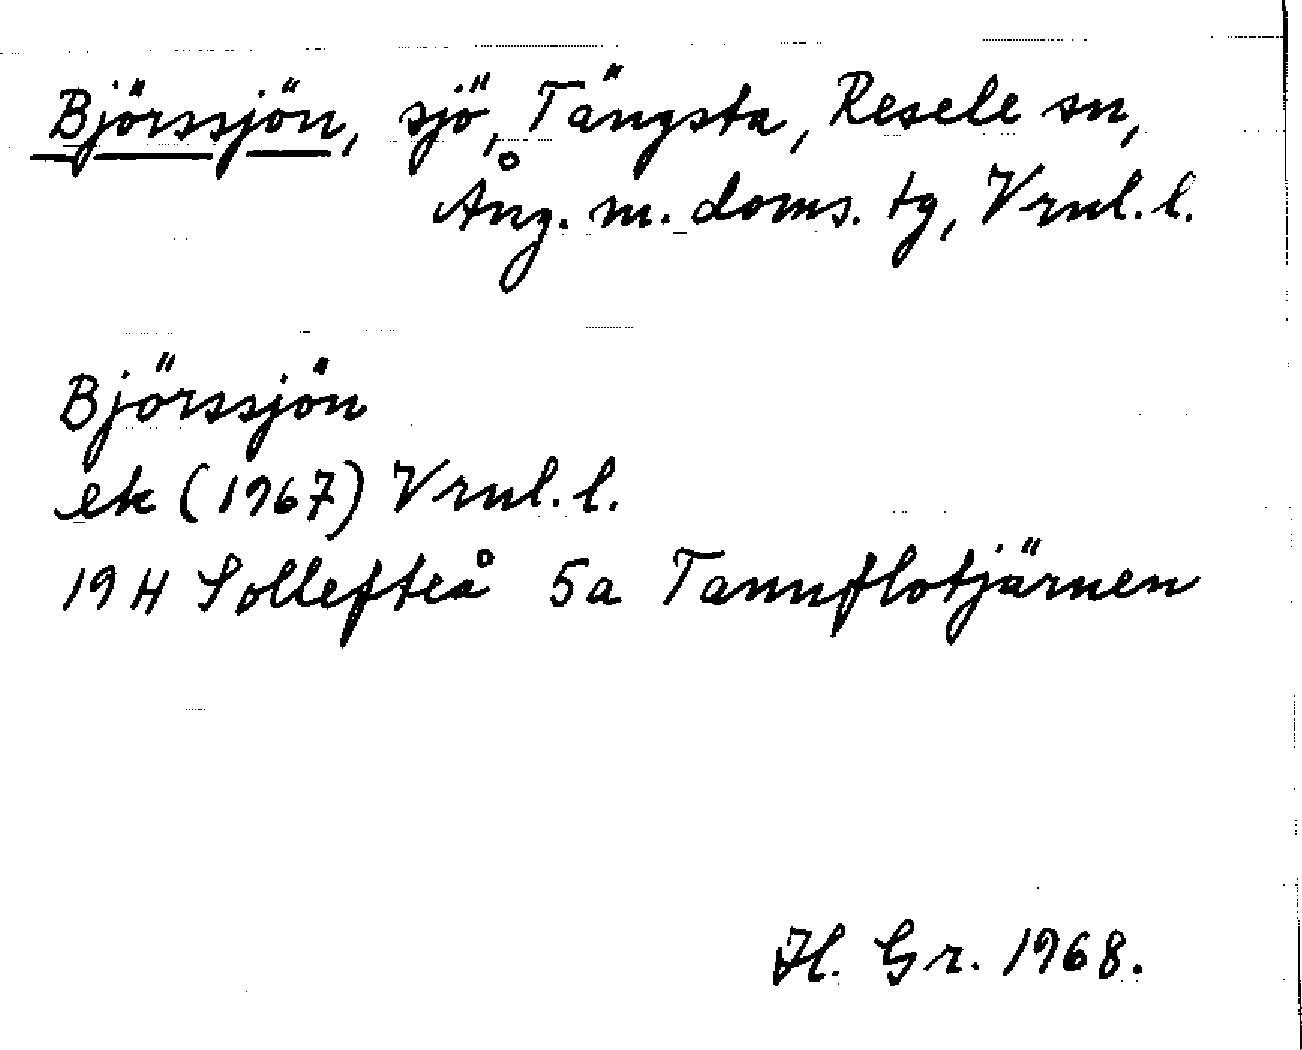 Björssjön, sjö, Tängsta, Resele sn,
Ång. m. doms. tg, Vrnl. l.
Björssjön
ek (1967) Vrnl. l.
19 H Sollefteå 5a Tannflotjärnen
H. Gr. 1968.